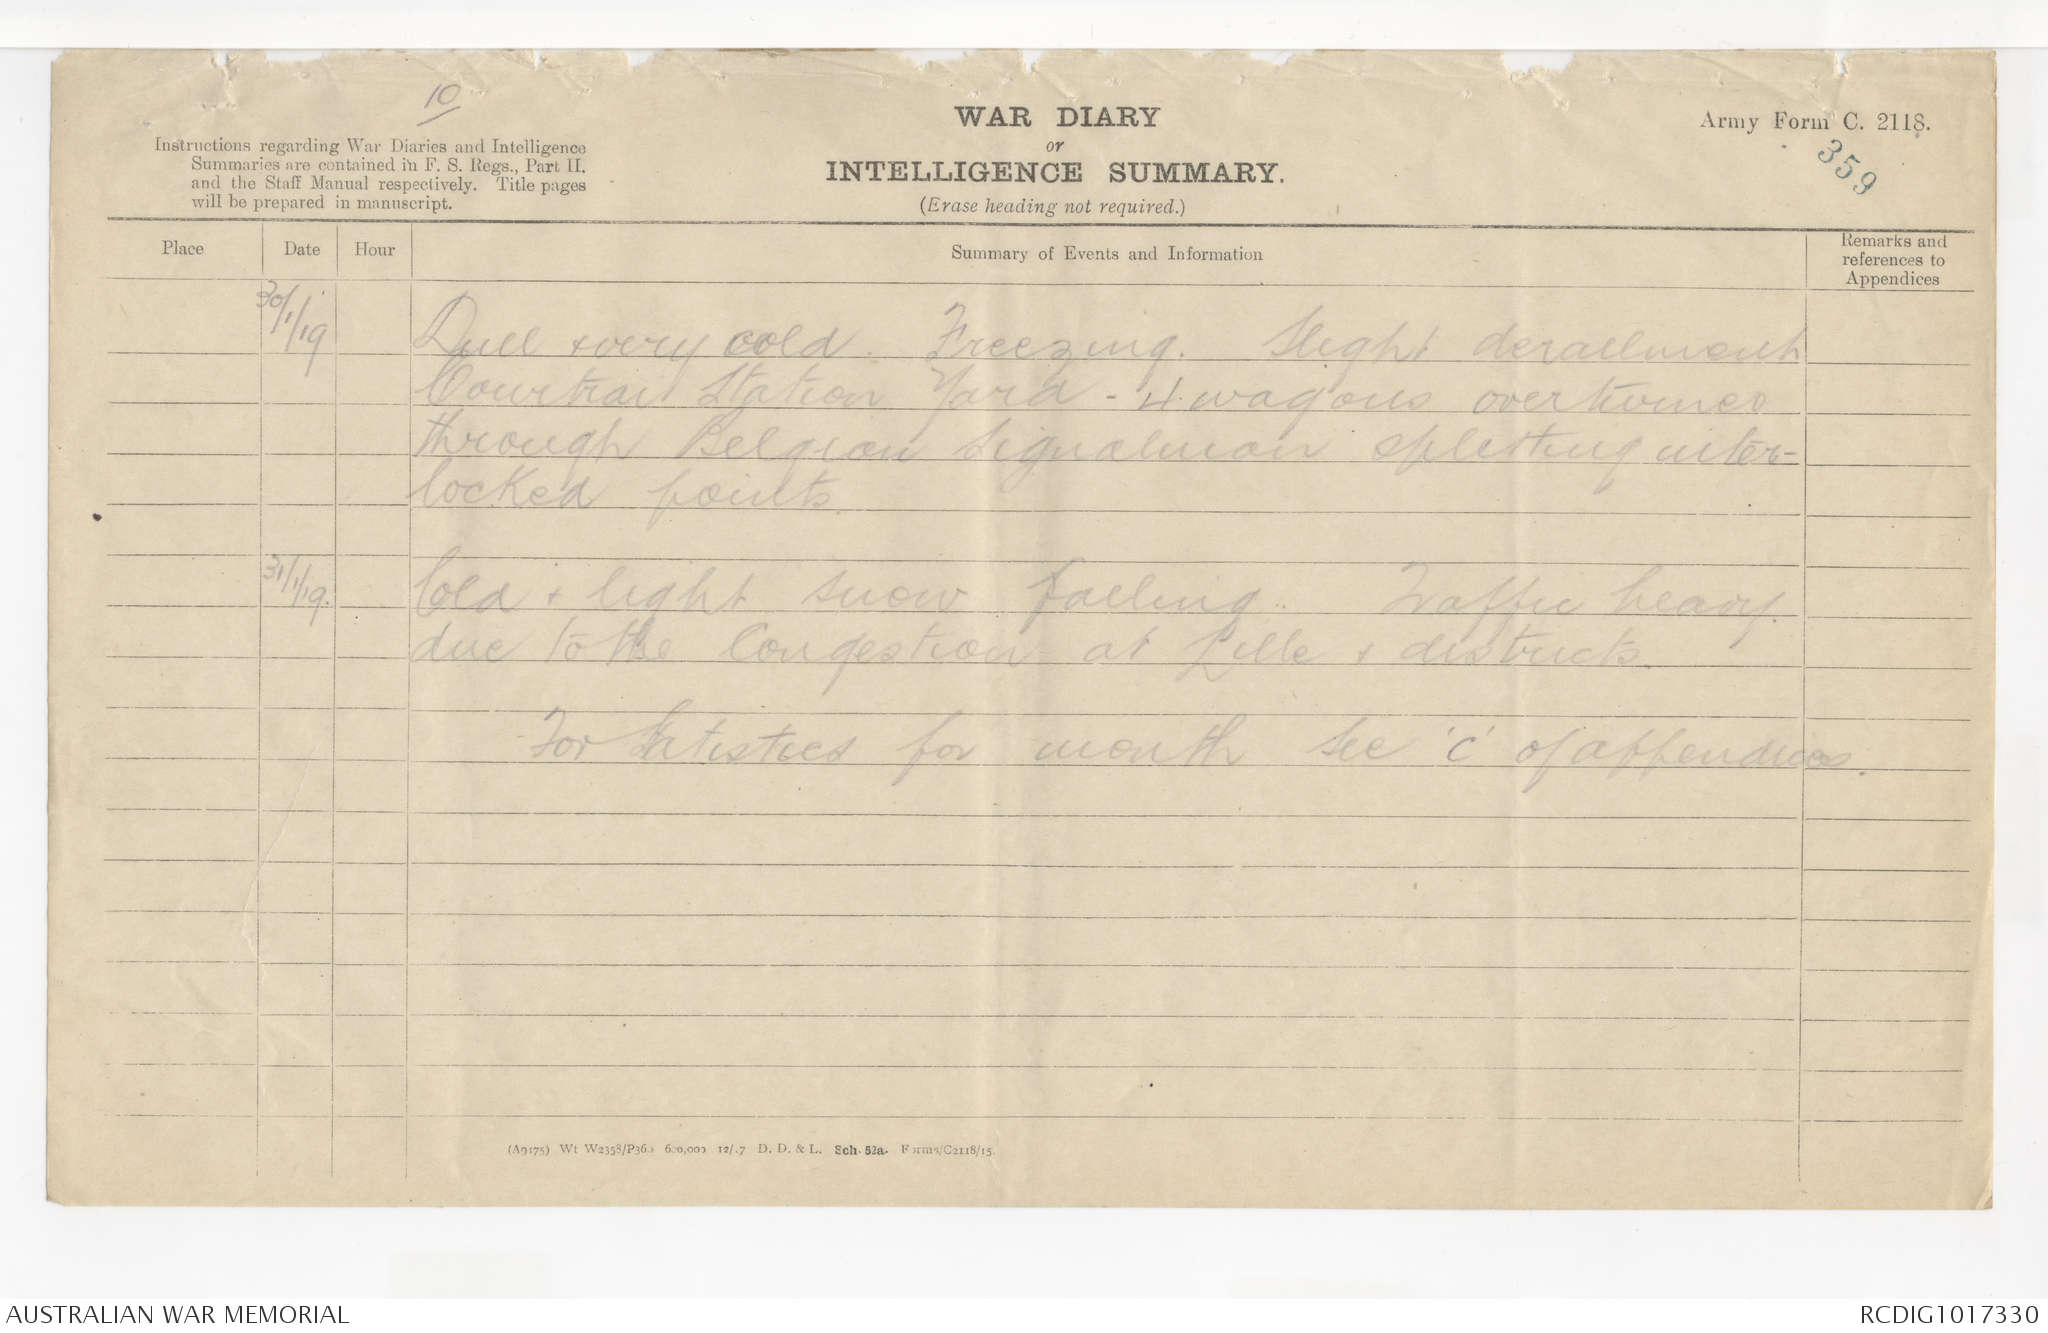 10
WAR DIARY
or
INTELLIGENCE SUMMARY.
(Erase heading not required.)
Army Form C. 2118.
359
Instructions regarding War Diaries and Intelligence
Summaries are contained in F. S. Regs., Part II.
and the Staff Manual respectively. Title pages
will be prepared in manuscript.
Place
Date
Hour
Summary of Events and Information
Remarks and
references to
Appendices
30/1/19
Dull & very cold. Freezing. Slight derailment
Courtrai Station Yard - 4 wagons overturned
through Belgian Signalman splitting inter-
locked points.
31/1/19.
Cold & light snow falling. Traffic heavy.
due to the Congestion at Lille & districts.
For Statistics for month see 'C' of appendices.
(A9175) Wt W2358/P360 600,000 12/17 D. D. & L. Sch. 52a. Forms/C2118/15.
AUSTRALIAN WAR MEMORIAL
RCDIG1017330